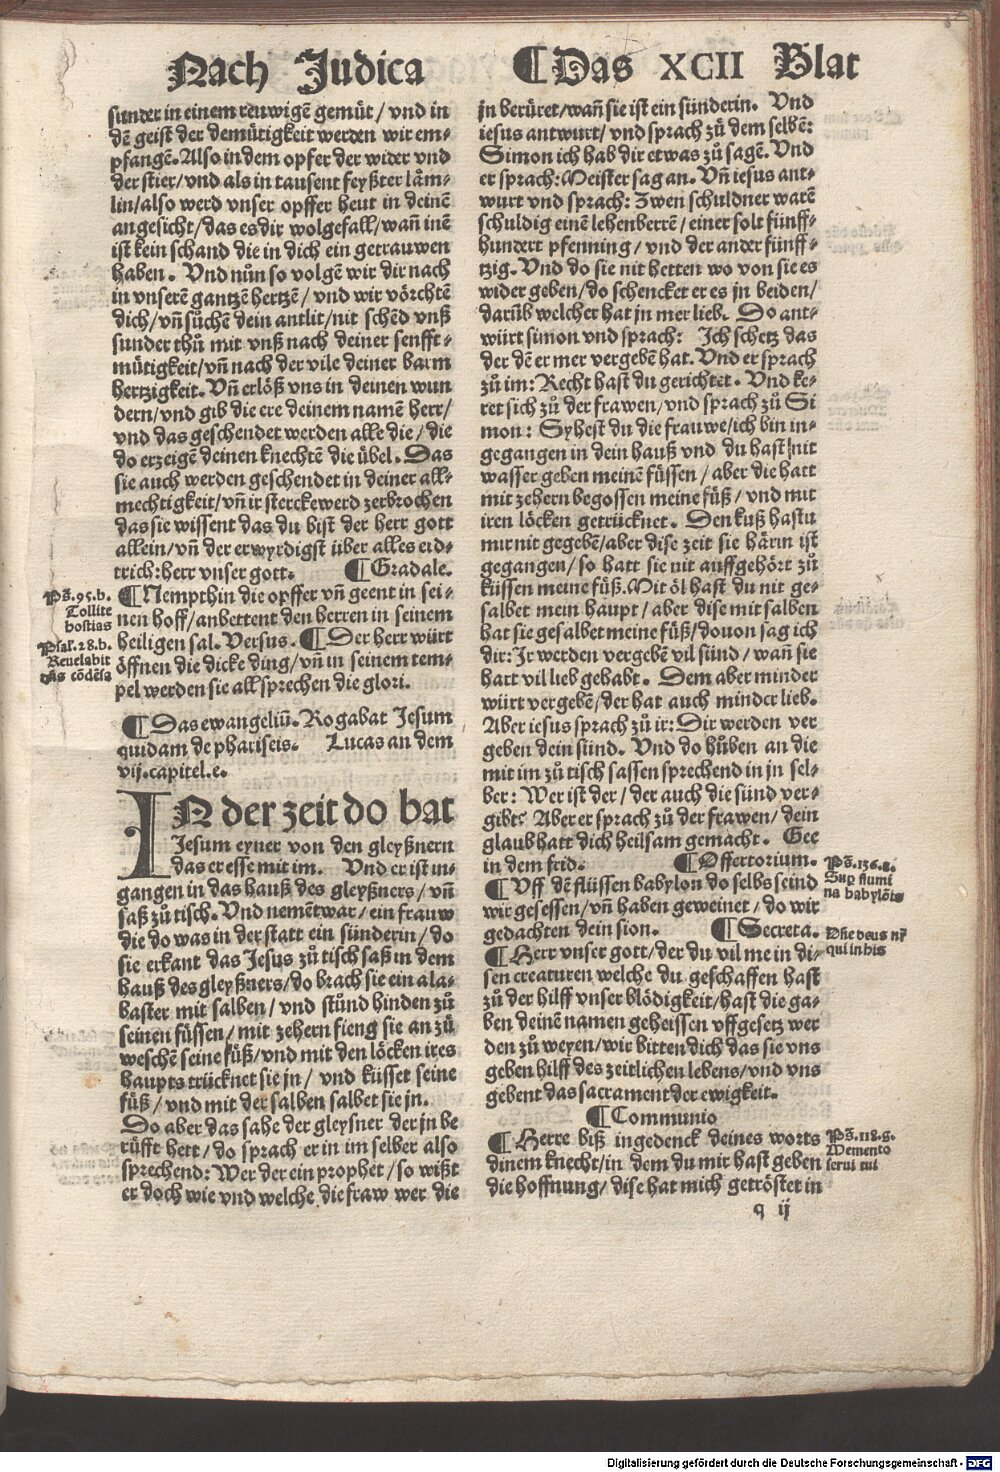 Nach Judica
¶Das XCII Blat
sunder in einem reuwigē gemüt / vnd in
dē geist der demütigkeit werden wir em⸗
pfangē. Also in dem opfer der wider vnd
der stier/vnd als in tausent feyßter läm⸗
lin/also werd vnser opffer heut in deinē
angesicht/das es dir wolgefall/wañ inē
ist kein schand die in dich ein getrauwen
haben. Vnd nůn so volgē wir dir nach
in vnserē gantzē hertzē/ vnd wir vörchtē
dich/vñ sůchē dein antlit/nit schēd vnß
sunder thů mit vnß nach deiner senfft⸗
mütigkeit/vñ nach der vile deiner barm
hertzigkeit. Vñ erlöß vns in deinen wun
dern/vnd gib die ere deinem namē herr/
vnd das geschendet werden alle die/die
do erzeigē deinen knechtē die übel. Das
sie auch werden geschendet in deiner all⸗
mechtigkeit/vñ ir sterckewerd zerbrochen
das sie wissent das du bist der herr gott
allein/vñ der erwyrdigst über alles erd⸗
trich: herr vnser gott. ¶Gradale.
¶Nempthin die opffer vñ geent in sei⸗
nen hoff/anbettent den herren in seinem
heiligen sal. Versus. ¶Der herr würt
öffnen die dicke ding/vñ in seinem tem⸗
pel werden sie all sprechen die glori.
Ps̄. 95. b.
Tollite
hostias
Psal. 28. b.
Reuelabit
dn̄s cōdēsa
¶Das ewangeliū. Rogabat Jesum
quidam de phariseis. Lucas an dem
vij. capitel. e.
IN der zeit do bat
Jesum eyner von den gleyßnern
das er esse mit im. Vnd er ist in⸗
gangen in das hauß des gleyßners/ vñ
saß zů tisch. Vnd nemēt war/ ein frauw
die do was in der statt ein sünderin/ do
sie erkant das Jesus zů tisch saß in dem
hauß des gleyßners/do brach sie ein ala⸗
baster mit salben / vnd stůnd hinden zů
seinen füssen/ mit zehern fieng sie an zů
weschē seine füß/vnd mit den löcken ires
haupts trücknet sie jn/ vnd küsset seine
füß/vnd mit der salben salbet sie jn.
Do aber das sahe der gleysner der jn be
rüfft hett/do sprach er in im selber also
sprechend: Wer der ein prophet/so wißt
er doch wie vnd welche die fraw wer die
jn berüret/wañ sie ist ein sünderin. Vnd
iesus antwurt/vnd sprach zů dem selbē:
Simon ich hab dir etwas zů sagē. Vnd
er sprach: Meister sag an. Vñ iesus ant⸗
wurt vnd sprach: Zwen schuldner warē
schuldig einē lehenherrē/einer solt fünff⸗
hundert pfenning/ vnd der ander fünff⸗
tzig. Vnd do sie nit hetten wo von sie es
wider geben/do schencket er es jn beiden/
darüb welcher hat jn mer lieb. Do ant⸗
würt simon vnd sprach: Ich schetz das
der dē er mer vergebē hat. Vnd er sprach
zů im: Recht hast du gerichtet. Vnd ke⸗
ret sich zů der frawen/vnd sprach zů Si
mon: Syhest du die frauwe/ich bin in⸗
gegangen in dein hauß vnd du hast nit
wasser geben meinē füssen/ aber die hatt
mit zehern begossen meine füß/ vnd mit
iren löcken getrücknet. Den kuß hastu
mir nit gegebē/aber dise zeit sie härin ist
gegangen/ so hatt sie nit auffgehört zů
küssen meine füß. Mit öl hast du nit ge⸗
salbet mein haupt/ aber dise mit salben
hat sie gesalbet meine füß/douon sag ich
dir: Ir werden vergebē vil sünd/ wañ sie
hatt vil lieb gehabt. Dem aber minder
würt vergebē/der hat auch minder lieb.
Aber iesus sprach zů ir: Dir werden ver
geben dein sünd. Vnd do hůben an die
mit im zů tisch sassen sprechend in jn sel⸗
ber: Wer ist der/ der auch die sünd ver⸗
gibt? Aber er sprach zů der frawen/ dein
glaub hatt dich heilsam gemacht. Gee
in dem frid. ¶Offertorium.
¶Uff dē flüssen babylon do selbs seind
wir gesessen/vñ haben geweinet/do wir
gedachten dein sion. ¶Secreta.
¶Herr vnser gott/der du vil me in di⸗
sen creaturen welche du geschaffen hast
zů der hilff vnser blödigkeit/hast die ga⸗
ben deinē namen geheissen vffgesetz wer
den zů weyen/wir bitten dich das sie vns
geben hilff des zeitlichen lebens/vnd vns
gebent das sacrament der ewigkeit.
¶Communio
¶Herre biß ingedenck deines worts
dinem knecht/in dem du mir hast geben
die hoffnung/ dise hat mich getröstet in
Ps̄. 136. a.
Sup flumi
na babylōis
Dn̄e deus nr̄
qui in his
Ps̄. 118. g.
Memento
serui tui
q ij
Digitalisierung gefördert durch die Deutsche Forschungsgemeinschaft - DFG